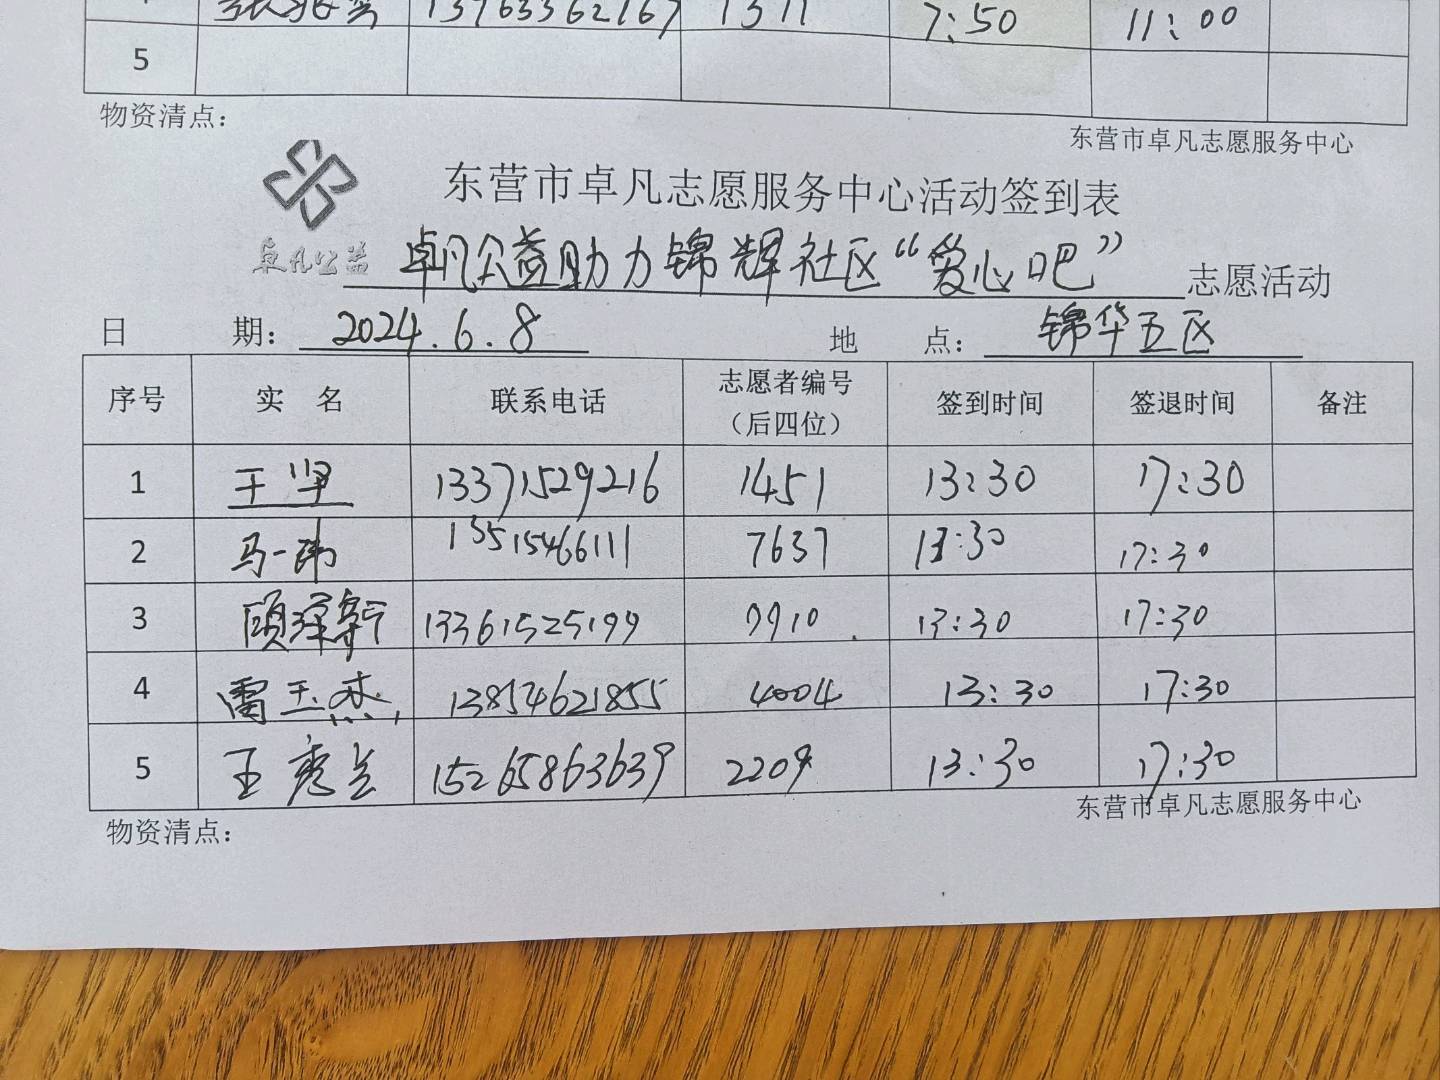 13963362167 1311 7:50 11:00
5
物资清点：
东营市卓凡志愿服务中心
东营市卓凡志愿服务中心活动签到表
卓凡公益
卓凡公益助力锦辉社区“爱心吧” 志愿活动
日 期： 2024.6.8 地 点： 锦华五区
序号 实 名 联系电话 志愿者编号（后四位） 签到时间 签退时间 备注
1 王坚 13371529216 1451 13:30 17:30
2 马一玮 13515466111 7637 13:30 17:30
3 顾泽新 13361525199 9910 13:30 17:30
4 雷玉杰 13854621855 4004 13:30 17:30
5 王秀兰 15265863639 2209 13:30 17:30
物资清点：
东营市卓凡志愿服务中心